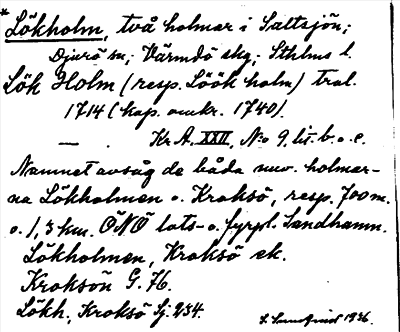 * Lökholm, två holmar i Saltsjön;
Djurö sn; Värmdö skg; Sthlms l.
Lök Holm (resp. Löök holm) tral.
1714 (kop. omkr. 1740).
— Kr. A. XXII, No 9, lit. b. o. c.
Namnet avsåg de båda nuv. holmar-
na Lökholmen o. Kroksö, resp. 700 m.
o. 1,3 km. ÖNÖ lots- o. fyrpl. Sandhamn.
Lökholmen, Kroksö ek.
Kroksön G. 76.
Lökh., Kroksö Sj. 234.
1936.